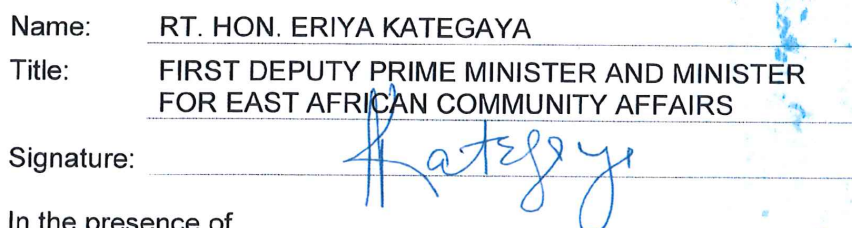 Name: RT. HON. ERIYA KATEGAYA
Title: FIRST DEPUTY PRIME MINISTER AND MINISTER
FOR EAST AFRICAN COMMUNITY AFFAIRS
Signature: Kategaya
In the presence of